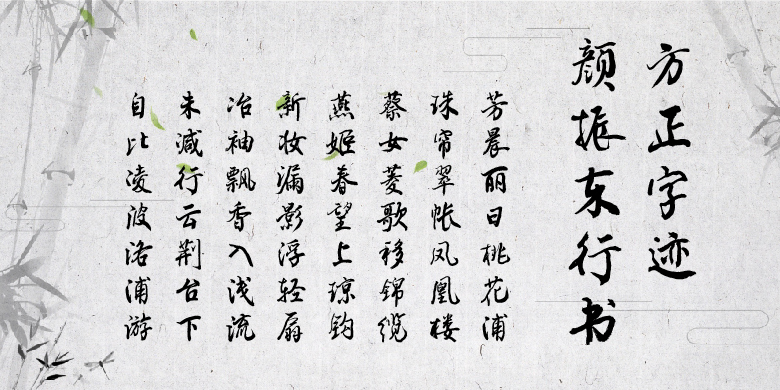 方正字迹
颜振东行书
芳晨丽日桃花浦
珠帘翠帐凤凰楼
蔡女菱歌移锦缆
燕姬春望上琼钩
新妆漏影浮轻扇
冶袖飘香入浅流
未减行云荆台下
自比凌波洛浦游